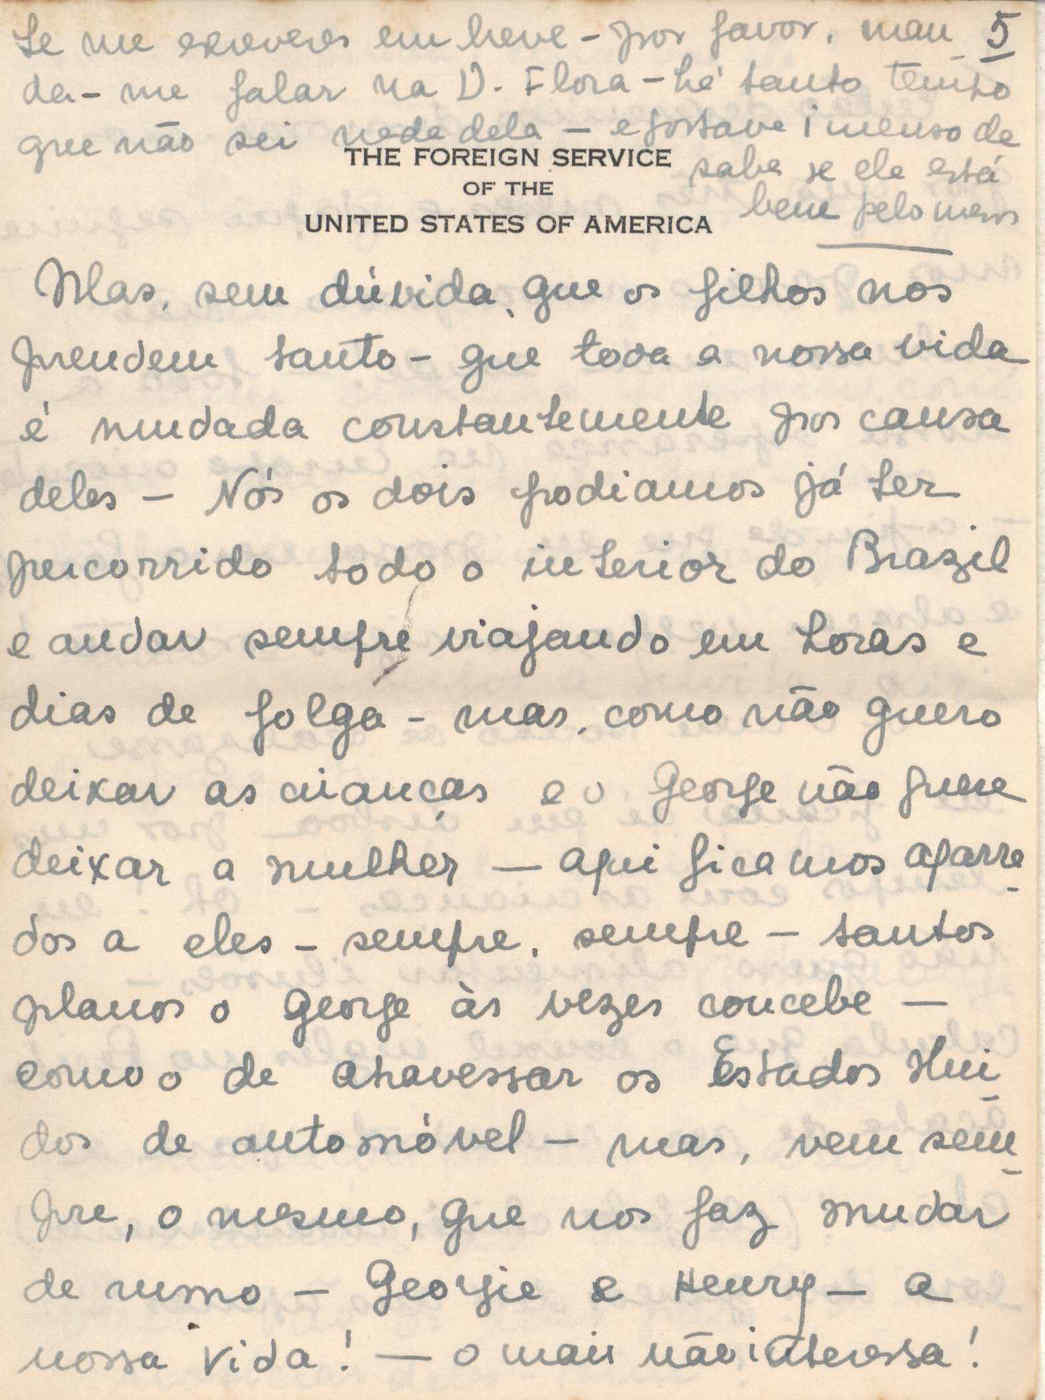 Se me escreveres em breve - por favor, man 5
da-me falar na D. Flora - há tanto tempo
que não sei nada dela - e gostava imenso de
THE FOREIGN SERVICE
sabe se ela está
OF THE
bem pelo menos
UNITED STATES OF AMERICA
Mas, sem dúvida, que os filhos nos
prendem tanto - que toda a nossa vida
é mudada constantemente por causa
deles - Nós os dois podiamos já ter
percorrido todo o interior do Brazil
e andar sempre viajando em horas e
dias de folga - mas, como não quero
deixar as crianças e o George não quere
deixar a mulher - aqui ficamos agarra
dos a eles - sempre, sempre - tantos
planos o George às vezes concebe -
como o de atravessar os Estados Uni
dos de automóvel - mas, vem sem
pre, o mesmo, que nos faz mudar
de rumo - Georgie e Henry - a
nossa vida! - o mais não interessa!